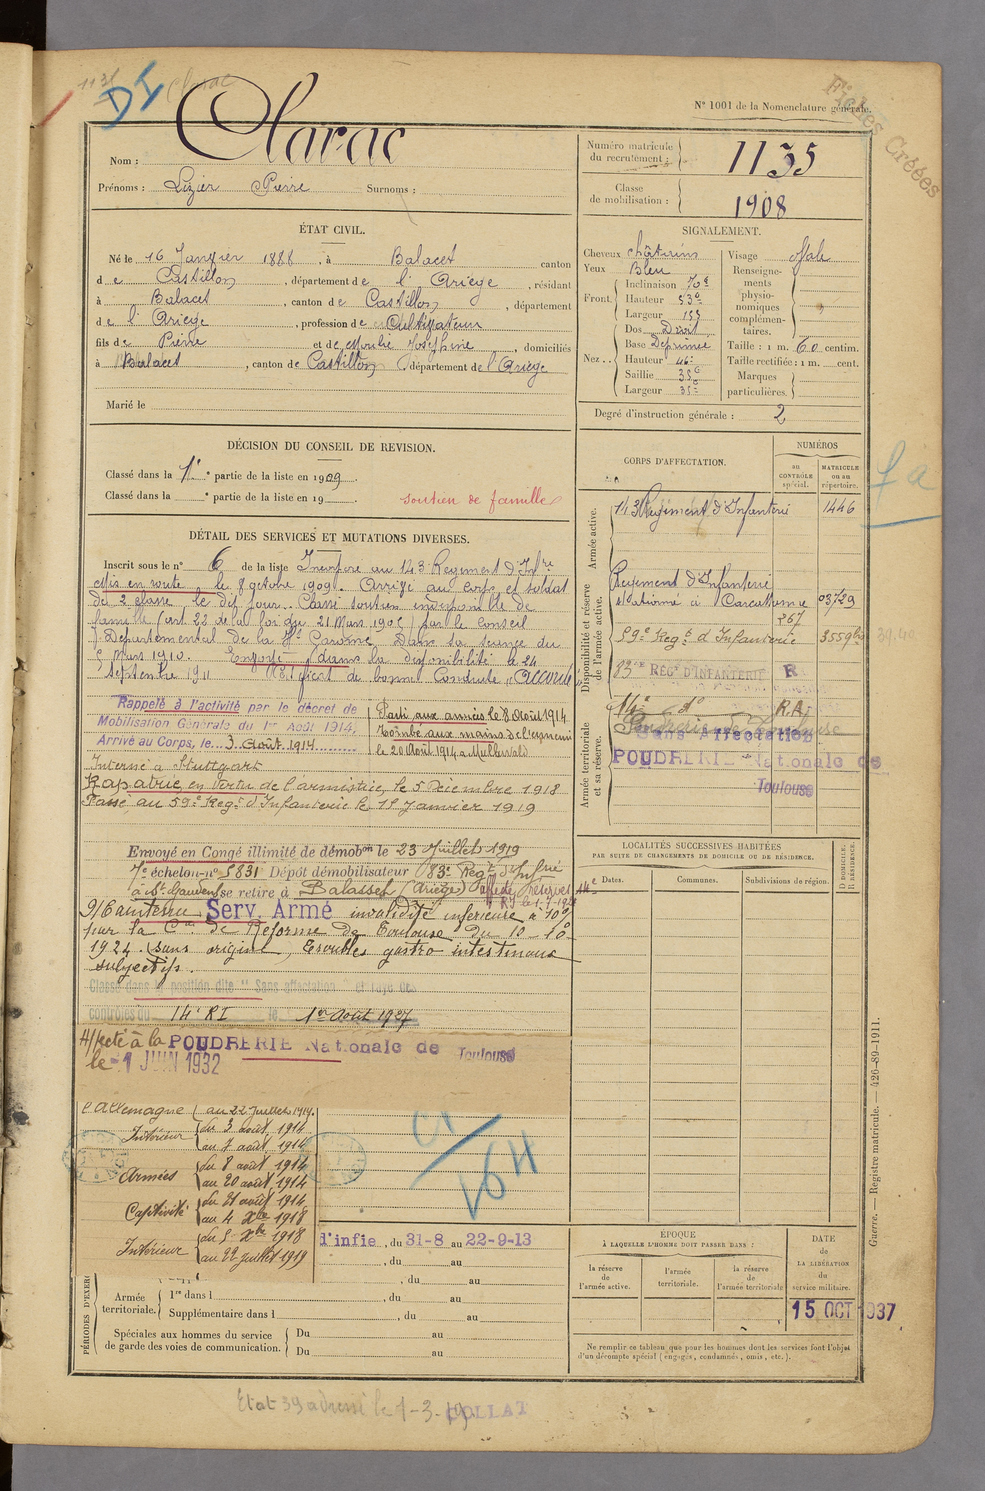 N° 1001 de la Nomenclature générale.
Fiches Créées
DI
Nom : Clarac
Prénoms : Lizier Pierre Surnoms :
Numéro matricule du recrutement : 1135
Classe de mobilisation : 1908
ÉTAT CIVIL.
Né le 16 Janvier 1888, à Balacet canton
de Castillon, département de l'Ariège, résidant
à Balacet, canton de Castillon, département
de l'Ariège, profession de Cultivateur
fils de Pierre et de Joséphine, domiciliés
à Balacet, canton de Castillon, département de l'Ariège
Marié le
SIGNALEMENT.
Cheveux châtains
Yeux Bleu
Front. Inclinaison
Hauteur
Largeur
Nez. Dos Droit
Base Déprimée
Hauteur
Saillie
Largeur
Visage Ovale
Renseignements physionomiques complémentaires.
Taille : 1 m. 60 centim.
Taille rectifiée : 1 m. cent.
Marques particulières.
Degré d'instruction générale : 2
DÉCISION DU CONSEIL DE REVISION.
Classé dans la 1re partie de la liste en 1909
Classé dans la e partie de la liste en 19
soutien de famille
DÉTAIL DES SERVICES ET MUTATIONS DIVERSES.
Inscrit sous le n° 6 de la liste Incorporé au 143 Régiment d'Infrie
Mis en route le 8 octobre 1909. Arrivé au corps et soldat
de 2e classe, le dit jour. Classé soutien indispensable de
famille (art. 22 de la loi du 21 Mars 1905) par le Conseil
Départemental de la Hte Garonne Dans sa séance du
Mars 1910. Envoyé dans la disponibilité le 24
Septembre 1911 Certificat de bonne Conduite "Accordé"
Rappelé à l'activité par le décret de
Mobilisation Générale du 1er Août 1914,
Arrivé au Corps, le 3 Août 1914
Parti aux armées le 8 Août 1914
Tombé aux mains de l'ennemi
le 20 Août 1914 à
Interné à Stuttgart
Rapatrié en vertu de l'armistice, le 5 Décembre 1918
Passé au 59e Régt d'Infanterie le Janvier 1919
Envoyé en Congé illimité de démobon le 23 Juillet 1919
7e échelon n° 5831 Dépôt démobilisateur 83e Régt d'Infrie
à St Gaudens se retire à Balasset (Ariège)
Maintenu Serv. Armé invalidité inférieure à 10%
par la Con de Réforme de Toulouse du
1924. Sans origine, Troubles gastro intestinaux
subjectifs.
Classé dans la position dite "Sans affectation" et rayé des
contrôles du 14e RI le 1er Août 1927
Affecté à la POUDRERIE Nationale de Toulouse
le -1 JUIN 1932
CORPS D'AFFECTATION.
NUMÉROS
au CONTRÔLE spécial.
MATRICULE ou au répertoire.
Armée active.
143 Régiment d'Infanterie 1446
Disponibilité et réserve de l'armée active.
Régiment d'Infanterie
stationné à Carcassonne 03729
59e Régt d'Infanterie
83e REGt D'INFANTERIE R
Armée territoriale et sa réserve.
14e do R.A.
Sans Affectation
POUDRERIE Nationale de
Toulouse
LOCALITÉS SUCCESSIVES HABITÉES
PAR SUITE DE CHANGEMENTS DE DOMICILE OU DE RÉSIDENCE.
Dates.
Communes.
Subdivisions de région.
D DOMICILE.
R RÉSIDENCE.
l'Allemagne au 22 Juillet 1919.
Intérieur du 3 août 1914
au 7 août 1914
Armées du 8 août 1914
au 20 août 1914
Captivité du 21 août 1914
au 4 Xbre 1918
Intérieur du 5 Xbre 1918
au 22 juillet 1919
d'infie, du 31-8 au 22-9-13
, du au
, du au
PÉRIODES D'EXER
Armée territoriale.
1re dans l , du au
Supplémentaire dans l , du au
Spéciales aux hommes du service de garde des voies de communication.
Du au
Du au
ÉPOQUE
À LAQUELLE L'HOMME DOIT PASSER DANS :
la réserve de l'armée active.
l'armée territoriale.
la réserve de l'armée territoriale
DATE de LA LIBÉRATION du service militaire.
15 OCT 1937
Ne remplir ce tableau que pour les hommes dont les services font l'objet
d'un décompte spécial (engagés, condamnés, omis, etc.).
Guerre. — Registre matricule. — 426-89-1911.
Etat 39 adressé le